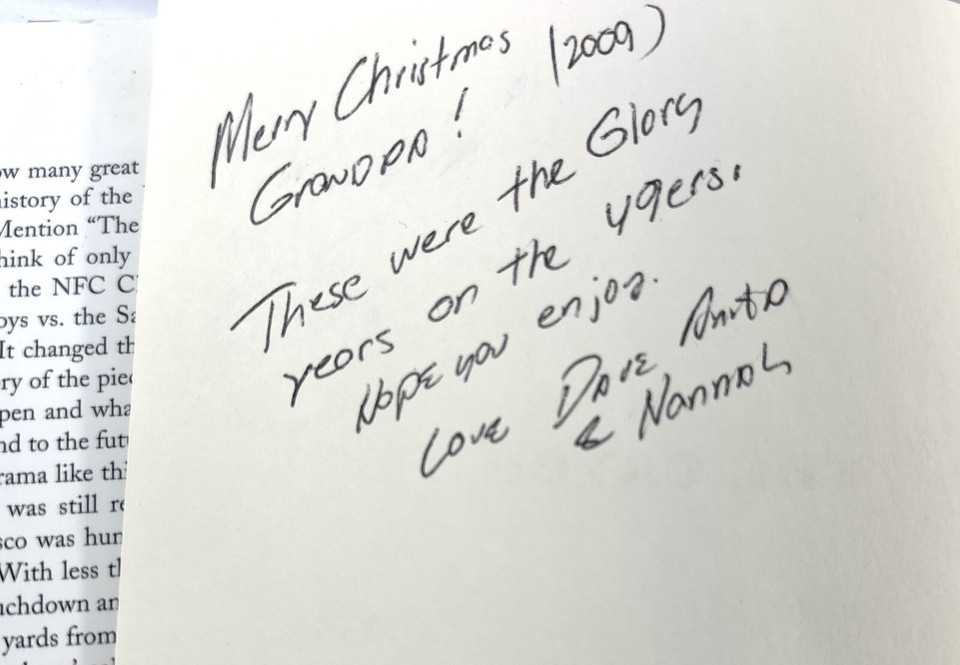 Merry Christmas (2009)
Grandpa!
These were the Glory
years on the 49ers.
Hope you enjoy.
Love Dave Anita
& Hannah
ow many great
history of the
Mention “The
hink of only
the NFC C
oys vs. the Sa
It changed th
ry of the piec
pen and wha
nd to the futu
rama like thi
was still re
sco was hun
With less tl
uchdown an
yards from